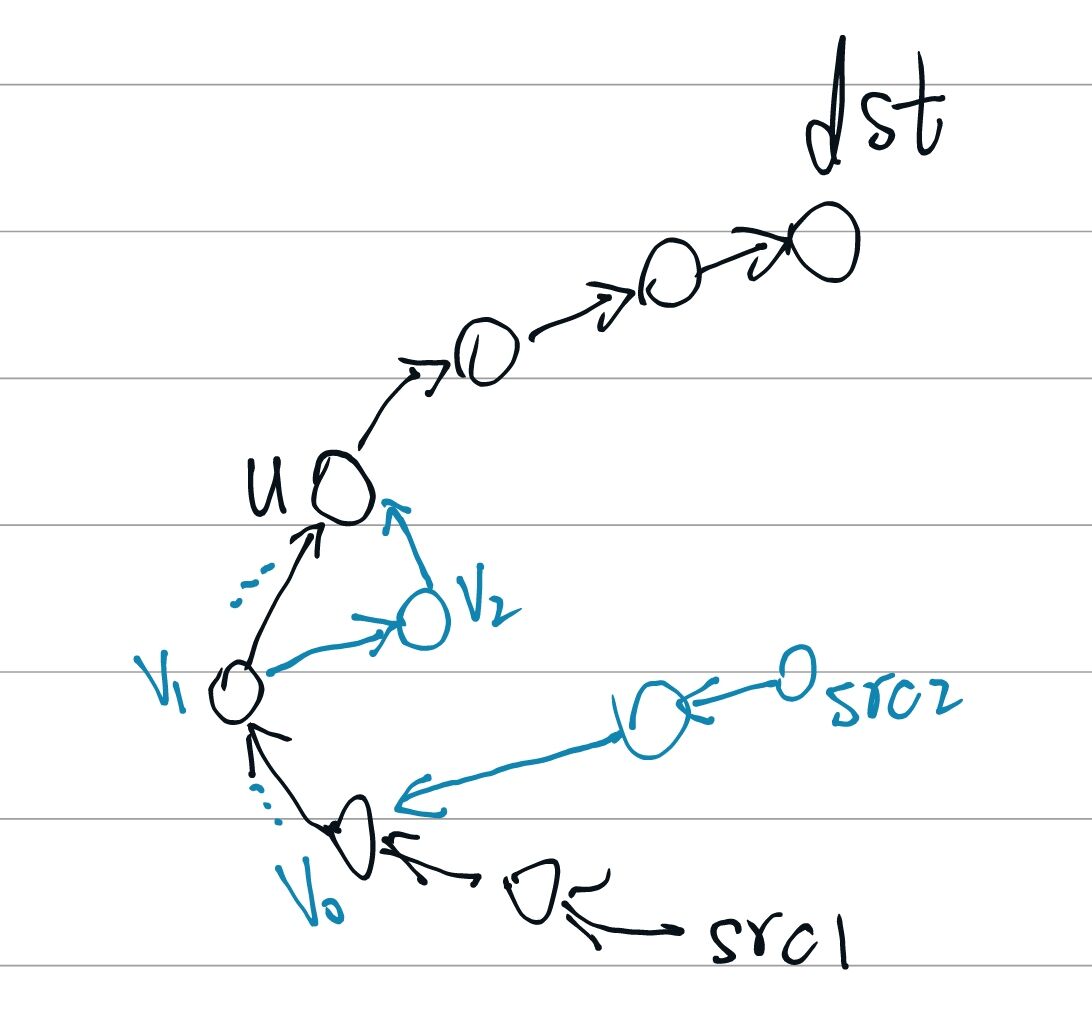 dst
u
V2
V1
src2
V0
src1